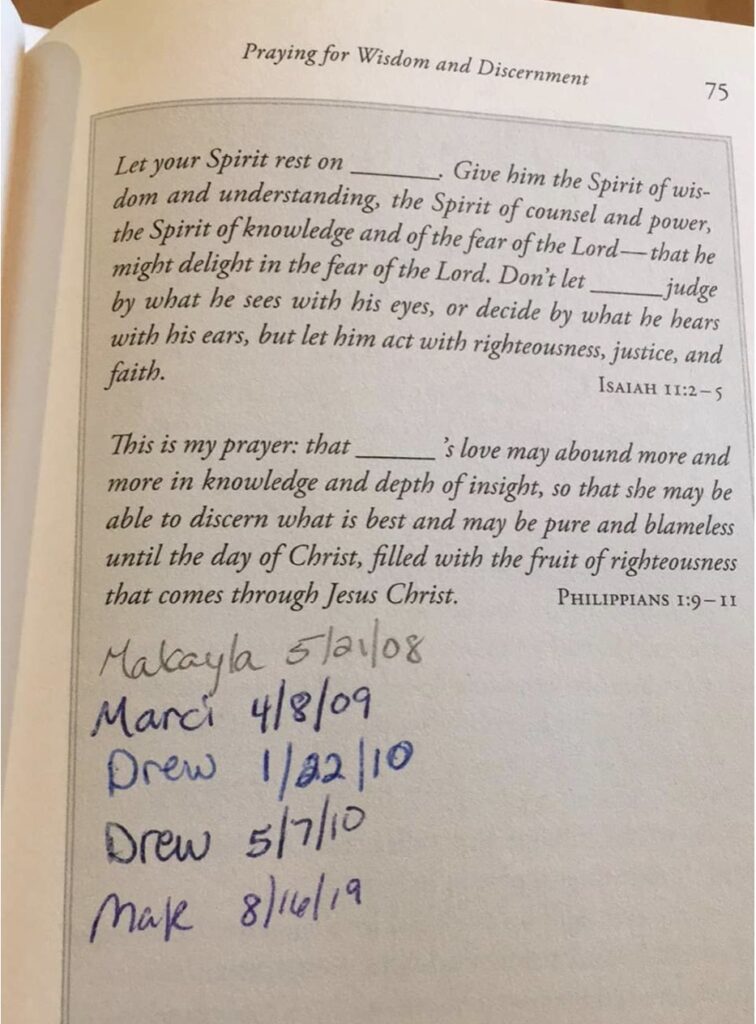 Praying for Wisdom and Discernment
75
Let your Spirit rest on ______. Give him the Spirit of wis-
dom and understanding, the Spirit of counsel and power,
the Spirit of knowledge and of the fear of the Lord—that he
might delight in the fear of the Lord. Don't let ______ judge
by what he sees with his eyes, or decide by what he hears
with his ears, but let him act with righteousness, justice, and
faith.
Isaiah 11:2–5
This is my prayer: that ______ 's love may abound more and
more in knowledge and depth of insight, so that she may be
able to discern what is best and may be pure and blameless
until the day of Christ, filled with the fruit of righteousness
that comes through Jesus Christ.
Philippians 1:9–11
Makayla 5/21/08
Marci 4/8/09
Drew 1/22/10
Drew 5/7/10
Mak 8/16/19